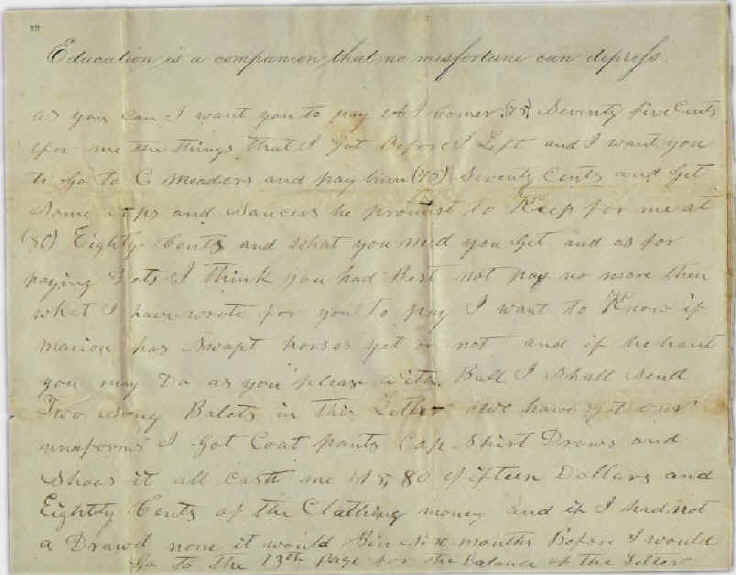 Education is a companion that no misfortune can depress.
as you can I want you to pay 75, Seventy five Cents
for me the things that I got before I Left and I want you
to go to C Meaders and pay him (70) Seventy Cents and get
Some cups and Saucers he promist to Keep for me at
(80) Eighty Cents and what you need you get and as for
paying Dets I think you had best not pay no more then
what I have wrote for you to pay I want to Know if
Marion has Swapt horses yet or not and if he haint
you may Do as you please with Ball I Shall Send
Two Song Balets in this Letter we have got our
unaforms I got Coat pants Cap Shirt Draws and
Shoes it all Cost me 15, 80 fifteen Dollars and
Eighty Cents of the Clothing money and if I had not
a Drawd none it would Bin Six months Before I would
Go to the 13th page for the Balance of the Letter